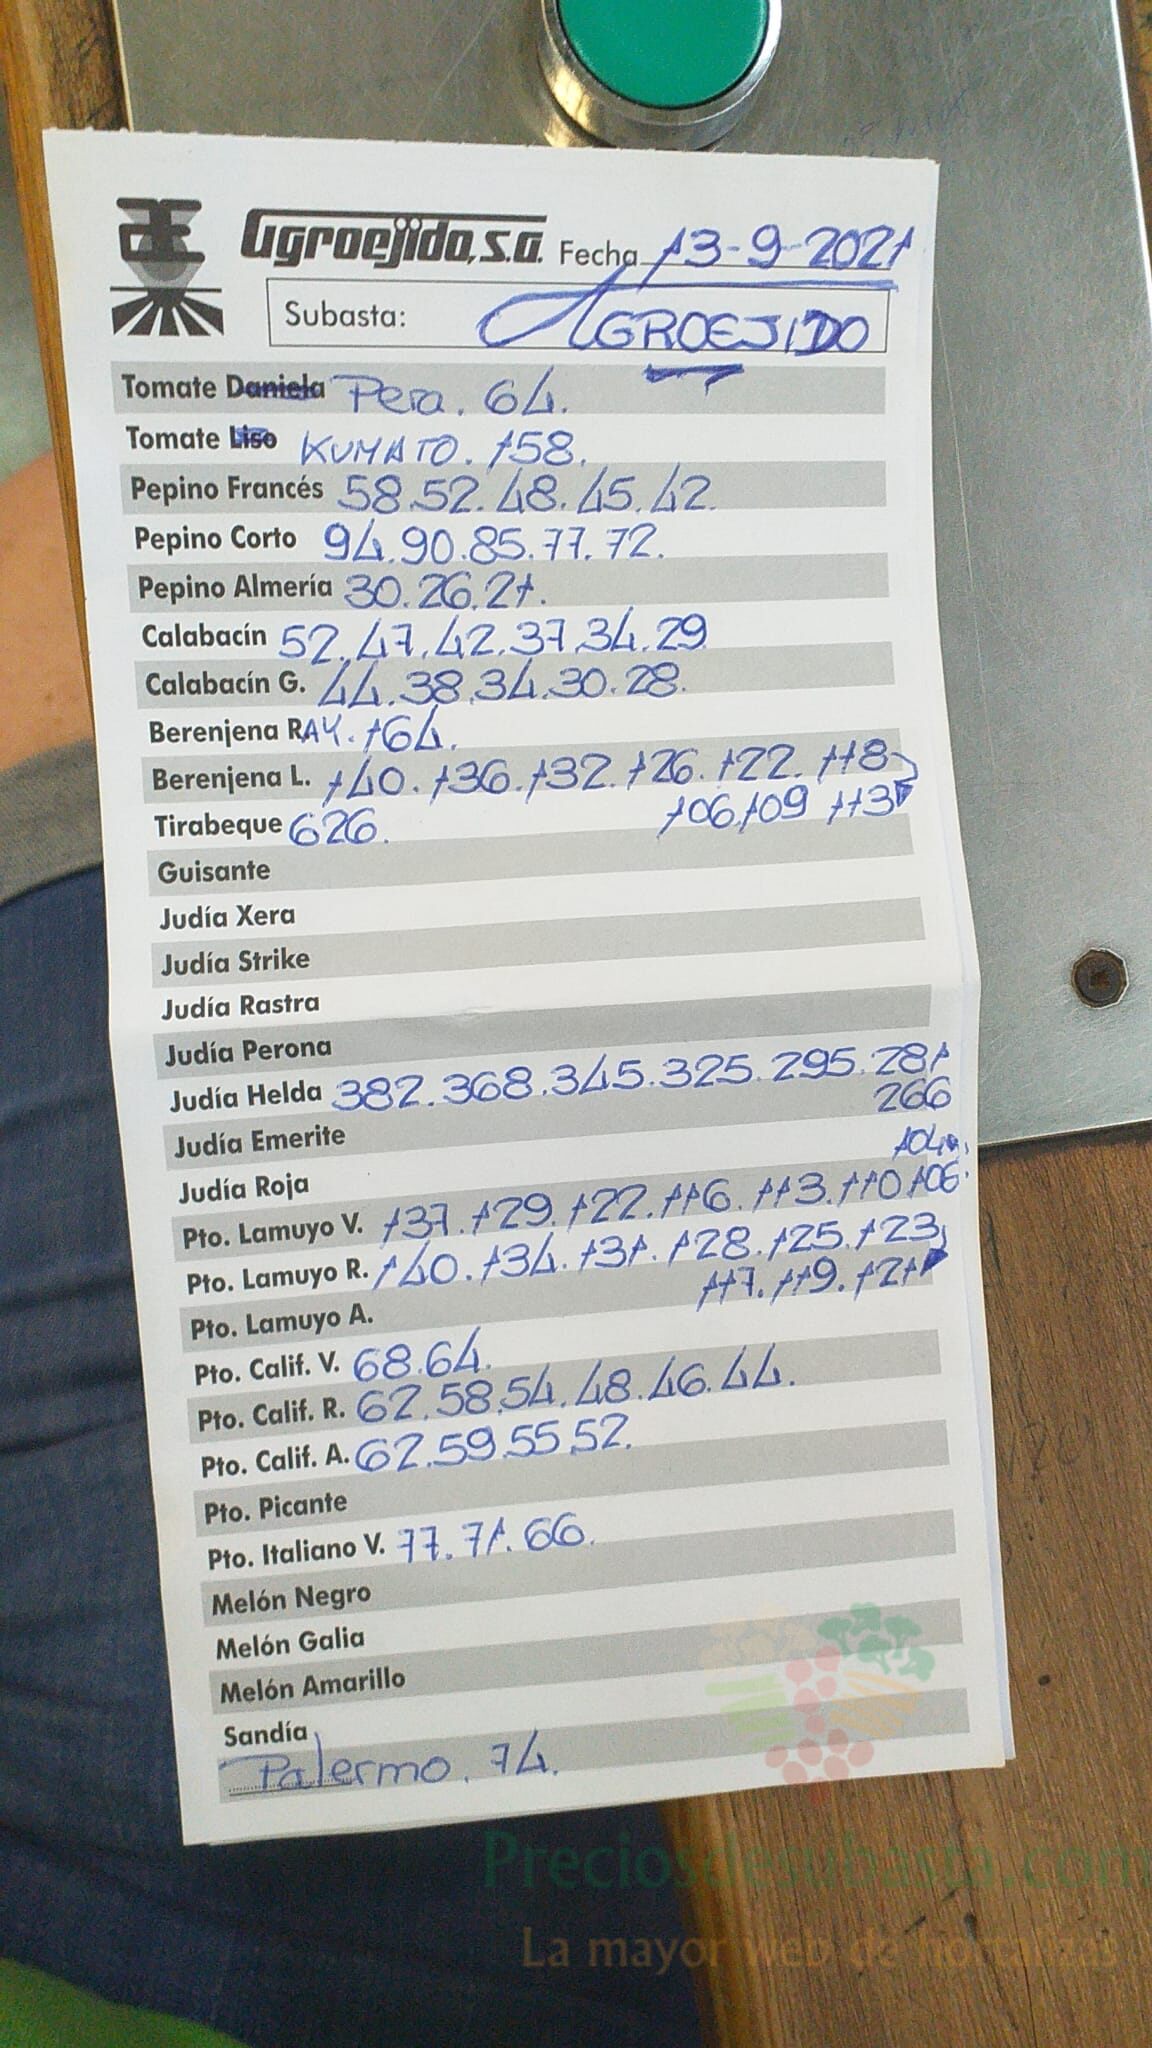 Agroejido, S.A. Fecha 13-9-2021
Subasta: AGROEJIDO
Tomate Daniela Pera. 64.
Tomate Liso KUMATO. 158.
Pepino Francés 58.52.48.45.42.
Pepino Corto 94.90.85.77.72.
Pepino Almería 30.26.21.
Calabacín 52.47.42.37.34.29
Calabacín G. 44.38.34.30.28.
Berenjena RAY. 164.
Berenjena L. 140.136.132.126.122.118
106.109 113
Tirabeque 626.
Guisante
Judía Xera
Judía Strike
Judía Rastra
Judía Perona
Judía Helda 382.368.345.325.295.281
266
Judía Emerite
Judía Roja
104
Pto. Lamuyo V. 137.129.122.116.113.110 106.
Pto. Lamuyo R. 140.134.131.128.125.123
117.119.121
Pto. Lamuyo A.
Pto. Calif. V. 68.64.
Pto. Calif. R. 62.58.54.48.46.44.
Pto. Calif. A. 62.59.55.52.
Pto. Picante
Pto. Italiano V. 77.71.66.
Melón Negro
Melón Galia
Melón Amarillo
Sandía
Palermo. 74.
Preciosdesubasta.com
La mayor web de hortalizas